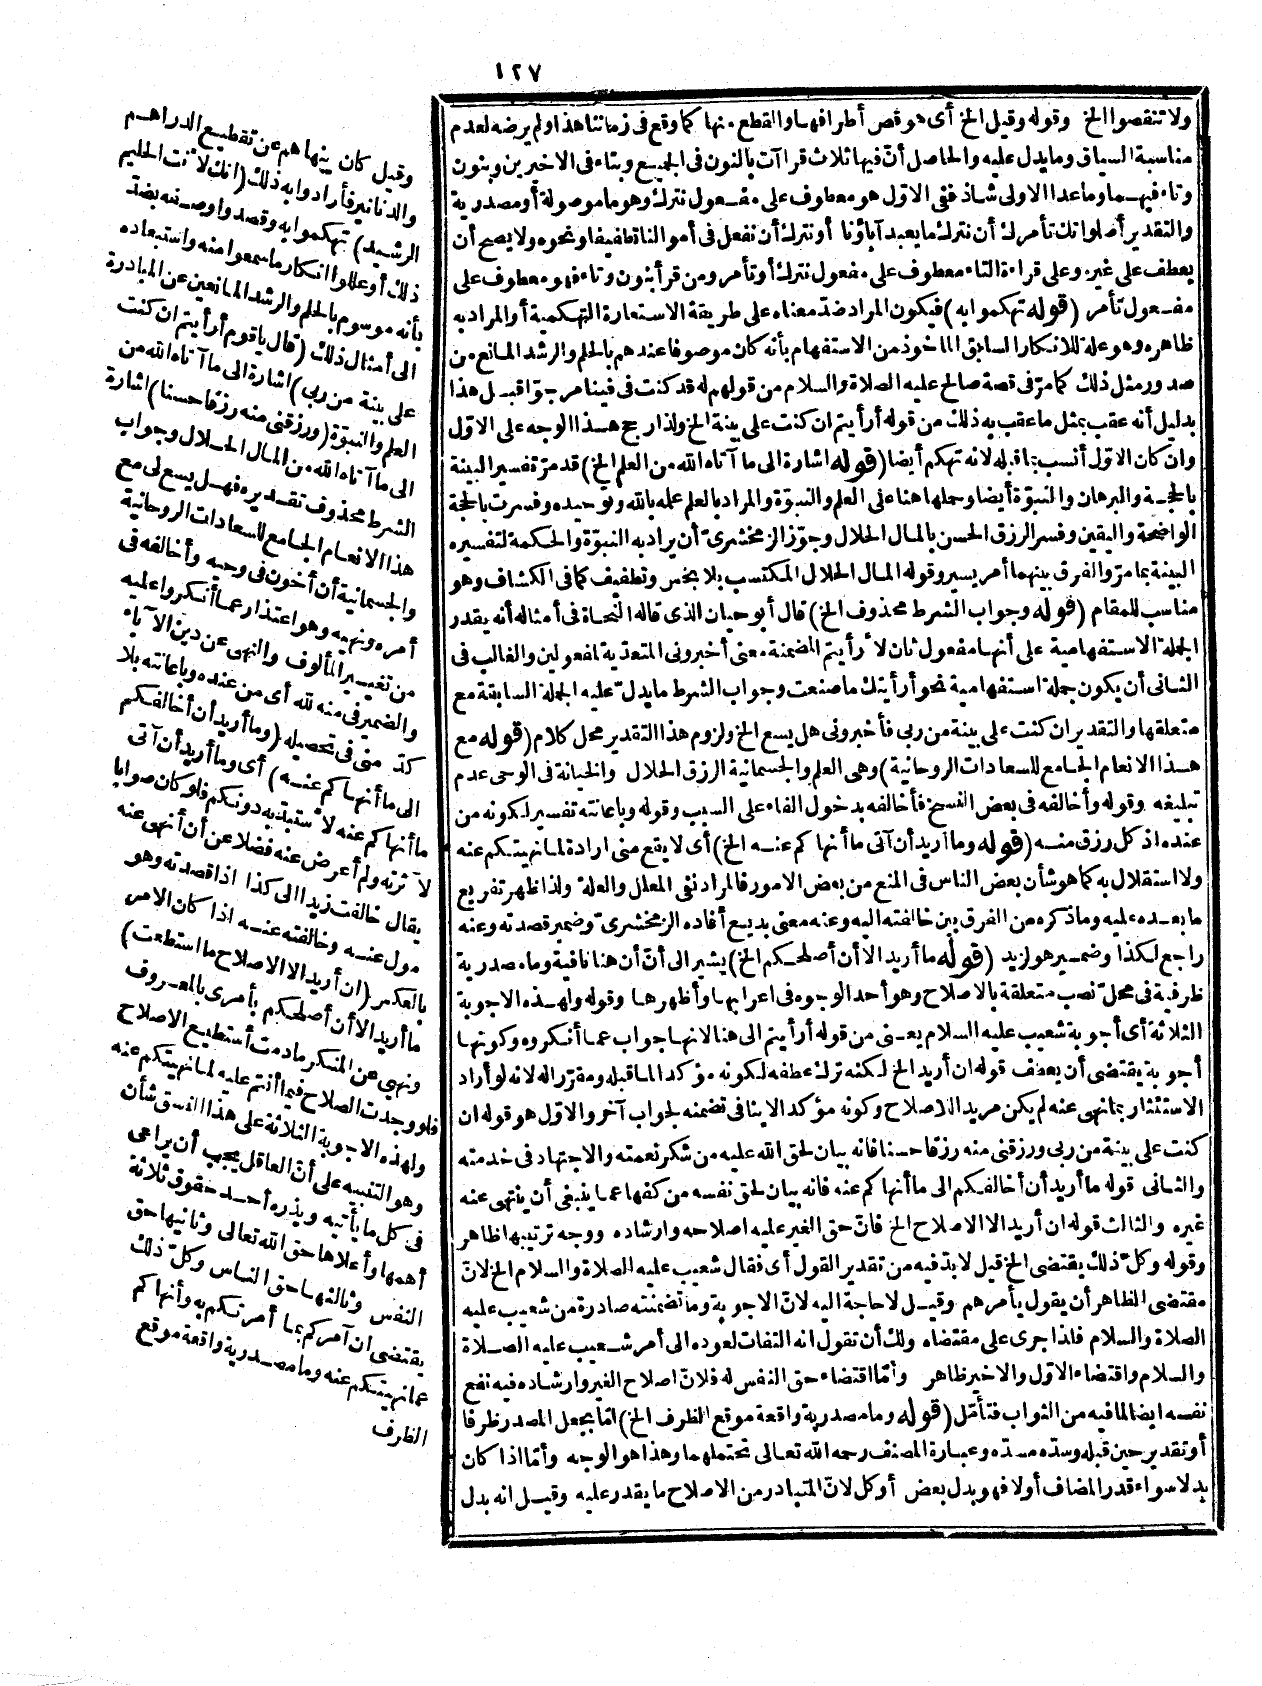 ١٢٧
ولا تنقصوا الخ وقوله وقيل الخ أى هو قص أطرافها والقطع منها كما وقع فى زماننا هذا ولم يرضه لعدم
مناسبة السياق وما يدل عليه والحاصل أنّ فيها ثلاث قراآت بالنون فى الجميع وبتاء فى الاخيرين وبنون
وتاء فيهما وما عدا الاولى شاذ ففى الاوّل هو معطوف على مفعول نترك وهو ما موصولة أو مصدرية
والتقدير أصلواتك تأمرك أن نترك ما يعبد آباؤنا أو نترك أن نفعل فى أموالنا تطفيفا ونحوه ولا يصح أن
يعطف على غيره وعلى قراءة التاء معطوف على مفعول نترك أو تأمر ومن قرأ بنون وتاء فهو معطوف على
مفعول تأمر (قوله تهكموا به) فيكون المراد ضدّ معناه على طريقة الاستعارة التهكمية أو المراد به
ظاهره وهو علة للانكار السابق المأخوذ من الاستفهام بأنه كان موصوفا عندهم بالحلم والرشد المانع من
صدور مثل ذلك كما مرّ فى قصة صالح عليه الصلاة والسلام من قولهم له قد كنت فى فينا مرجوّا قبل هذا
بدليل أنه عقب بمثل ما عقب به ذلك من قوله أرأيتم ان كنت على بينة الخ ولذا رجح هذا الوجه على الاوّل
وان كان الاوّل أنسب بما قبله لانه تهكم أيضا (قوله اشارة الى ما آتاه الله من العلم الخ) قد مرّ تفسير البينة
بالحجة والبرهان والنبوّة أيضا وحملها هنا على العلم والنبوّة والمراد بالعلم علمه بالله وتوحيده وفسرت بالحجة
الواضحة واليقين وفسر الرزق الحسن بالمال الحلال وجوّز الزمخشرىّ أن يراد به النبوّة والحكمة لتفسيره
البينة بما مرّ والفرق بينهما أمر يسير وقوله المال الحلال المكتسب بلا بخس وتطفيف كما فى الكشاف وهو
مناسب للمقام (قوله وجواب الشرط محذوف الخ) قال أبو حيان الذى قاله النحاة فى أمثاله أنه يقدر
الجملة الاستفهامية على أنها مفعول ثان لأرأيتم المضمنة معنى أخبرونى المتعدّية لمفعولين والغالب فى
الثانى أن يكون جملة استفهامية نحو أرأيتك ما صنعت وجواب الشرط ما يدلّ عليه الجملة السابقة مع
متعلقها والتقدير ان كنت على بينة من ربى فأخبرونى هل يسع الخ ولزوم هذا التقدير محل كلام (قوله مع
هذا الانعام الجامع للسعادات الروحانية) وهى العلم والجسمانية الرزق الحلال والخيانة فى الوحى عدم
تبليغه وقوله وأخالفه فى بعض النسخ فأخالفه بدخول الفاء على السبب وقوله وباعانته تفسير لكونه من
عنده اذ كل رزق منه (قوله وما أريد أن آتى ما أنهاكم عنه الخ) أى لا يقع منى ارادة لما نهيتكم عنه
ولا استقلال به كما هو شأن بعض الناس فى المنع من بعض الامور فالمراد نفى المعلل والعلة ولذا ظهر تفريع
ما بعده عليه وما ذكره من الفرق بين خالفته اليه وعنه معنى بديع أفاده الزمخشرىّ وضمير قصدته وعنه
راجع لكذا وضمير هو لزيد (قوله ما أريد الا أن أصلحكم الخ) يشير الى أنّ أن هنا نافية وما مصدرية
ظرفية فى محلّ نصب متعلقة بالاصلاح وهو أحد الوجوه فى اعرابها وأظهرها وقوله ولهذه الاجوبة
الثلاثة أى أجوبة شعيب عليه السلام يعنى من قوله أرأيتم الى هنا لانها جواب عما أنكروه وكونها
أجوبة يقتضى أن يعطف قوله ان أريد الخ لكنه ترك عطفه لكونه مؤكد الما قبله ومقرّرا له لانه لو أراد
الاستئثار بما نهى عنه لم يكن مريد الاصلاح وكونه مؤكد الا ينافى تضمنه لجواب آخر والاوّل هو قوله ان
كنت على بينة من ربى ورزقنى منه رزقا حسنا فانه بيان لحق الله عليه من شكر نعمته والاجتهاد فى خدمته
والثانى قوله ما أريد أن أخالفكم الى ما أنهاكم عنه فانه بيان لحق نفسه من كفها عما ينبغى أن ينتهى عنه
غيره والثالث قوله ان أريد الا الاصلاح الخ فانّ حق الغير عليه اصلاحه وارشاده ووجه ترتيبها ظاهر
وقوله وكلّ ذلك يقتضى الخ قيل لا بدّ فيه من تقدير القول أى فقال شعيب عليه الصلاة والسلام الخ لانّ
مقتضى الظاهر أن يقول يأمرهم وقيل لا حاجة اليه لانّ الاجوبة وما تضمنته صادرة من شعيب عليه
الصلاة والسلام فلذا جرى على مقتضاه ولك أن تقول انه التفات لعوده الى أمر شعيب عليه الصلاة
والسلام واقتضاء الاوّل والاخير ظاهر وأمّا اقتضاء حق النفس له فلانّ اصلاح الغير وارشاده فيه نفع
نفسه ايضا لما فيه من الثواب فتأمّل (قوله وما مصدرية واقعة موقع الظرف الخ) امّا بجعل المصدر ظرفا
أو تقدير حين قبله وسدّه مسدّه وعبارة المصنف رحمه الله تعالى تحتملهما وهذا هو الوجه وأمّا اذا كان
بدلا سواء قدر المضاف أولا فهو بدل بعض أو كل لانّ المتبادر من الاصلاح ما يقدر عليه وقيل انه بدل
وقيل كان ينهاهم عن تقطيع الدراهم
والدنانير فأرادوا به ذلك (انك لأنت الحليم
الرشيد) تهكموا به وقصدوا وصفه بضدّ
ذلك أو عللوا انكار ما سمعوا منه واستبعاده
بأنه موسوم بالحلم والرشد المانعين عن المبادرة
الى أمثال ذلك (قال يا قوم أرأيتم ان كنت
على بينة من ربى) اشارة الى ما آتاه الله من
العلم والنبوّة (ورزقنى منه رزقا حسنا) اشارة
الى ما آتاه الله من المال الحلال وجواب
الشرط محذوف تقديره فهل يسع لى مع
هذا الانعام الجامع للسعادات الروحانية
والجسمانية أن أخون فى وحيه وأخالفه فى
أمره ونهيه وهو اعتذار عما أنكروا عليه
من تغيير المألوف والنهى عن دين الآباء
والضمير فى منه لله أى من عنده وباعانته بلا
كدّ منى فى تحصيله (وما أريد أن أخالفكم
الى ما أنهاكم عنه) أى وما أريد أن آتى
ما أنهاكم عنه لأستبدّ به دونكم فلو كان صوابا
لآثرته ولم أعرض عنه فضلا عن أن أنهى عنه
يقال خالفت زيدا الى كذا اذا قصدته وهو
مول عنه وخالفته عنه اذا كان الامر
بالعكس (ان أريد الا الاصلاح ما استطعت)
ما أريد الا أن أصلحكم بأمرى بالمعروف
ونهيى عن المنكر ما دمت أستطيع الاصلاح
فلو وجدت الصلاح فيما أنتم عليه لما نهيتكم عنه
ولهذه الاجوبة الثلاثة على هذا النسق شأن
وهو التنبيه على أنّ العاقل يجب أن يراعى
فى كل ما يأتيه ويذره أحد حقوق ثلاثة
أهمها وأعلاها حق الله تعالى وثانيها حق
النفس وثالثها حق الناس وكلّ ذلك
يقتضى ان آمركم بما أمرتكم به وأنهاكم
عما نهيتكم عنه وما مصدرية واقعة موقع
الظرف